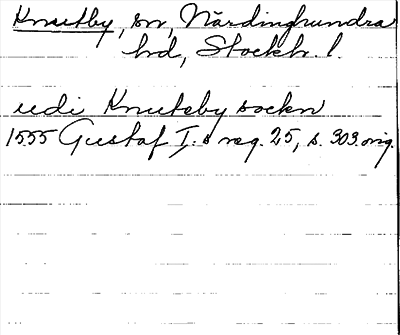 Knutby, sn, Närdinghundra
hd, Stockh. l.
udi Knutsby sockn
1555 Gustaf I:s reg. 25, s. 303 orig.